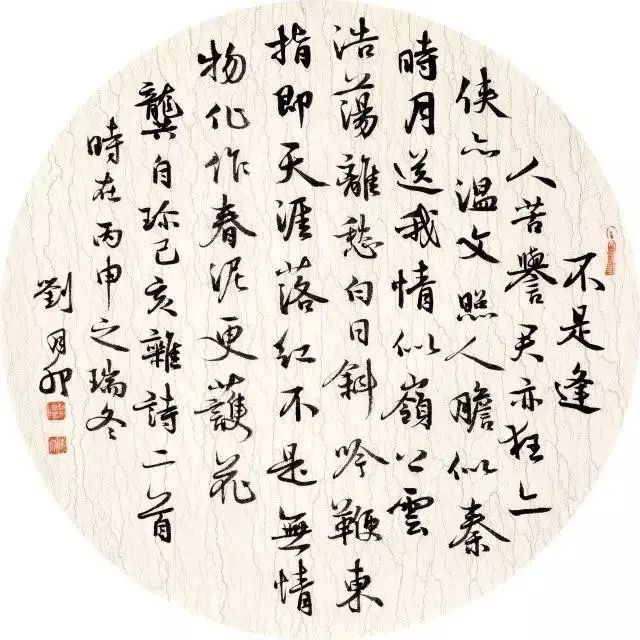 不是逢
人苦譽君亦狂亦
俠亦溫文照人膽似秦
時月送我情似嶺上雲
浩蕩離愁白日斜吟鞭東
指即天涯落紅不是無情
物化作春泥更護花
龔自珍己亥雜詩二首
時在丙申之瑞冬
劉月卯